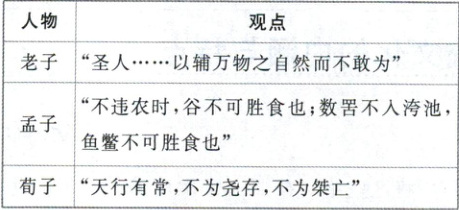 人物 观点
老子 “圣人……以辅万物之自然而不敢为”
孟子 “不违农时,谷不可胜食也;数罟不入洿池,
鱼鳖不可胜食也”
荀子 “天行有常,不为尧存,不为桀亡”